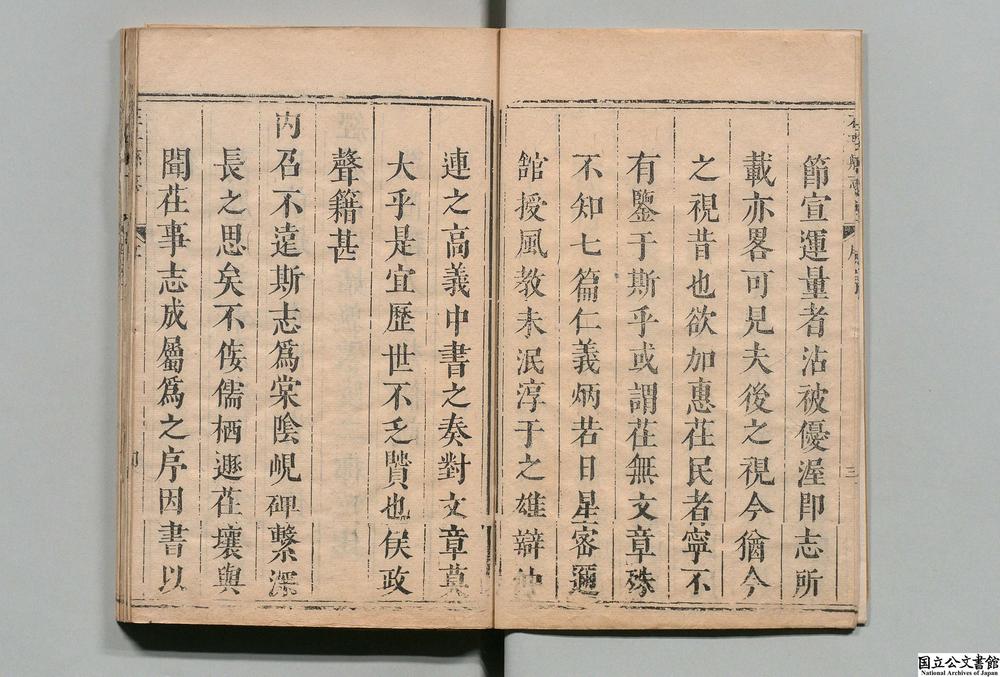 節宣運量者沾被優渥卽志所
載亦畧可見夫後之視今猶今
之視昔也欲加惠茌民者寧不
有鑒于斯乎或謂茌無文章殊
不知七篇仁義炳若日星密邇
舘授風教未泯淳于之雄辯仲
連之高義中書之奏對文章莫
大乎是宜歷世不乏賢也侯政
聲籍甚
內召不遠斯志爲棠陰峴碑繫深
長之思矣不侫儒栖遯茌壤與
聞茌事志成屬爲之序因書以
三
国立公文書館
National Archives of Japan